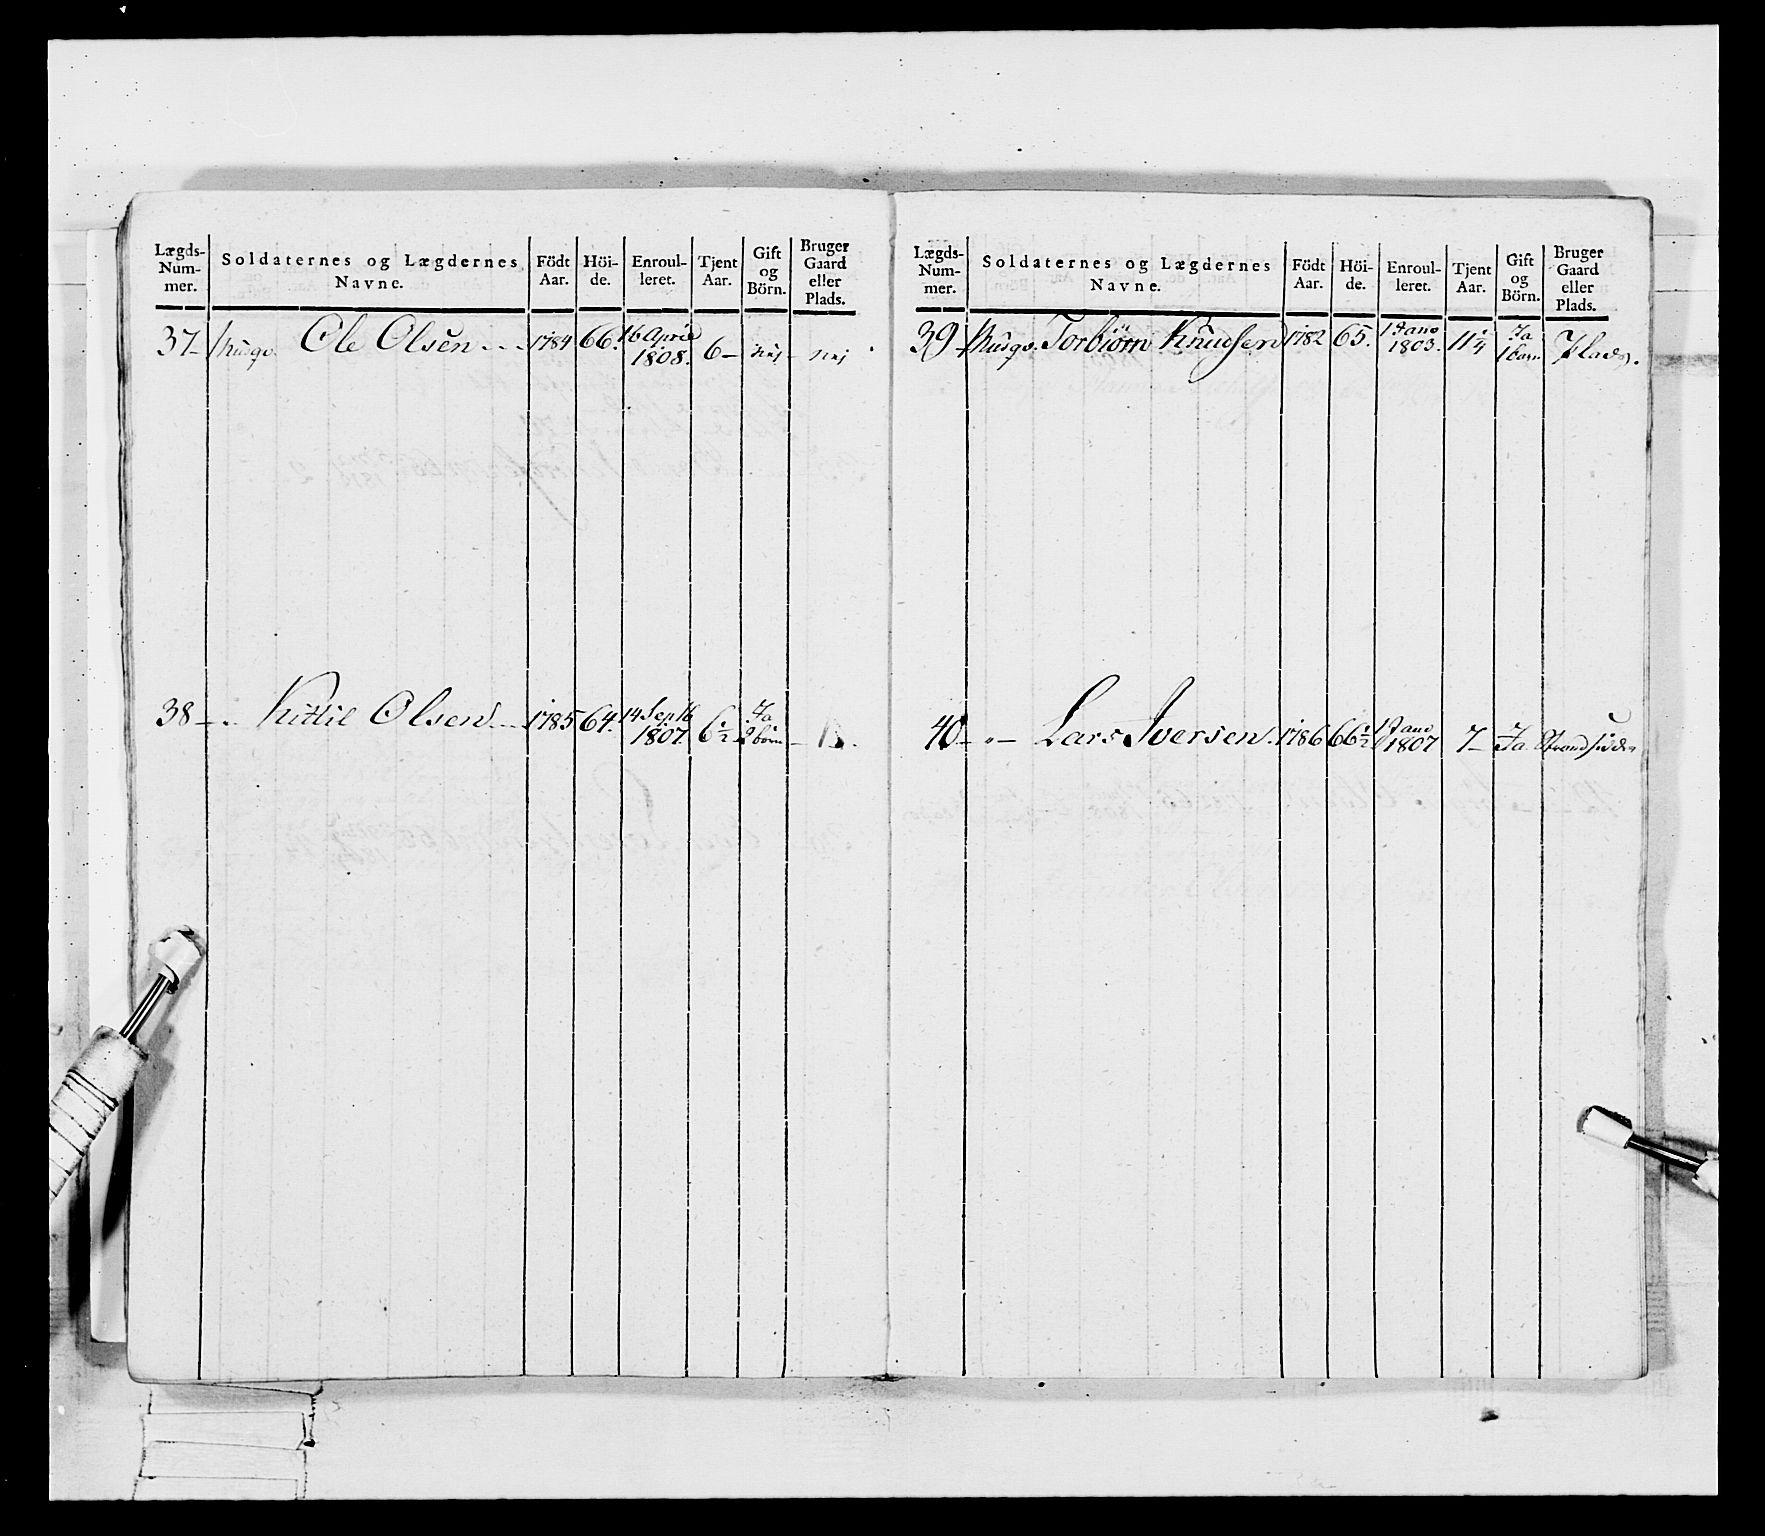 Lægds-Num-mer. Soldaternes og Lægdernes Navne. Födt Aar. Höi-de. Enroul-leret. Tjent Aar. Gift og Börn. Bruger Gaard eller Plads.
37 – Musqv. Ole Olsen 1784 66. 16 April 1808. 6 – nej – nej
38 – " Kittil Olsen 1785 64. 14 Sept 1807. 6 1/2 Ja 2 börn –
Lægds-Num-mer. Soldaternes og Lægdernes Navne. Födt Aar. Höi-de. Enroul-leret. Tjent Aar. Gift og Börn. Bruger Gaard eller Plads.
39 – Musqv. Torbiörn Knudsen 1782 65. 1 Jano 1803. 11 1/4 Ja 1 barn Plads.
40 – " – Lars Iversen. 1786 66 1/2 1 Jano 1807 7 – Ja Strandsidder